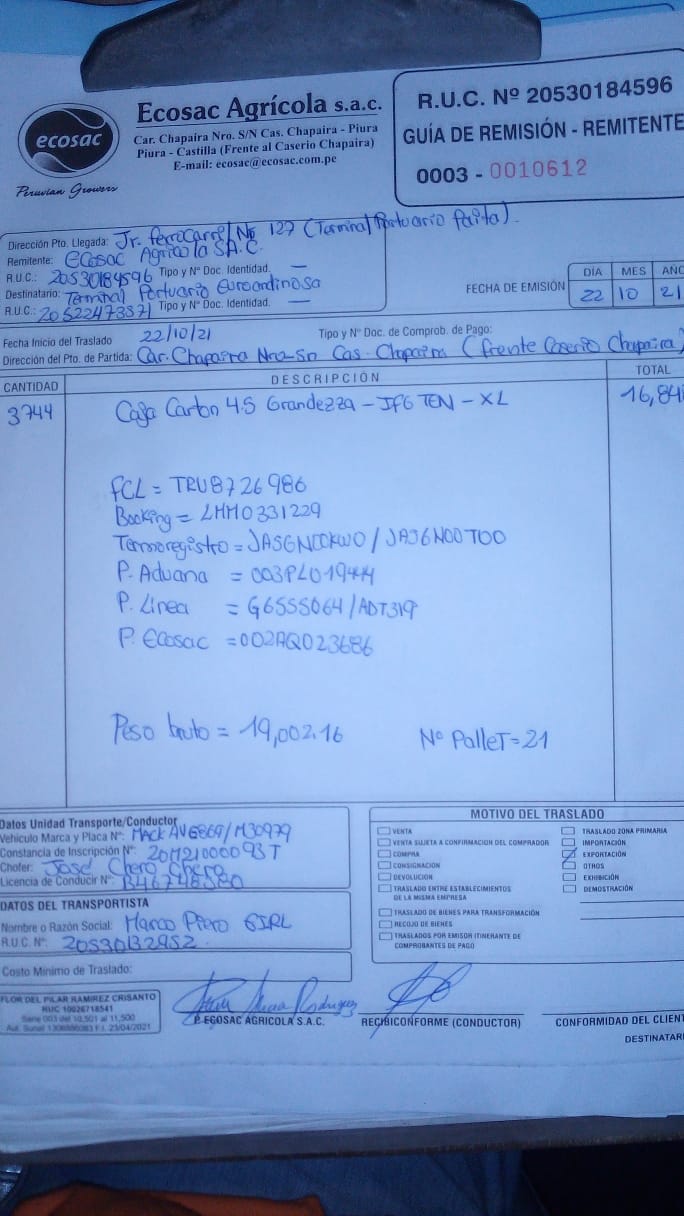 ecosac
Peruvian Growers
Ecosac Agrícola s.a.c.
Car. Chapaira Nro. S/N Cas. Chapaira - Piura
Piura - Castilla (Frente al Caserio Chapaira)
E-mail: ecosac@ecosac.com.pe
R.U.C. Nº 20530184596
GUÍA DE REMISIÓN - REMITENTE
0003 - 0010612
Dirección Pto. Llegada: Jr. Ferrocarril Nº 127 (Terminal Portuario Paita).
Remitente: Ecosac Agricola S.A.C.
R.U.C.: 20530184596 Tipo y Nº Doc. Identidad. —
Destinatario: Terminal Portuario Euroandinos sa
R.U.C.: 20522473571 Tipo y Nº Doc. Identidad. —
FECHA DE EMISIÓN
DÍA MES AÑO
22 10 21
Fecha Inicio del Traslado 22/10/21 Tipo y Nº Doc. de Comprob. de Pago:
Dirección del Pto. de Partida: Car. Chapaira Nro-Sn Cas. Chapaira (frente Caserio Chapaira)
CANTIDAD DESCRIPCIÓN TOTAL
3744 Caja Carton 4.5 Grandezza - IFG TEN - XL 16,848
FCL = TRU8726986
Booking = LMM0331229
Termoregistro = JA56N00KW0 / JAJ6N00TOO
P. Aduana = 003PL01944
P. Linea = G6555064/ADT319
P. Ecosac = 002AQ023686
Peso bruto = 19,002.16 Nº Pallet = 21
Datos Unidad Transporte/Conductor
Vehículo Marca y Placa Nº: Mack AVG869/M30979
Constancia de Inscripción Nº: 20M21000093T
Chofer: José Chero Chero
Licencia de Conducir Nº: B46748580
DATOS DEL TRANSPORTISTA
Nombre o Razón Social: Marco Piero EIRL
R.U.C. Nº: 20530132952
Costo Minimo de Traslado:
MOTIVO DEL TRASLADO
VENTA
VENTA SUJETA A CONFIRMACION DEL COMPRADOR
COMPRA
CONSIGNACION
DEVOLUCION
TRASLADO ENTRE ESTABLECIMIENTOS
DE LA MISMA EMPRESA
TRASLADO DE BIENES PARA TRANSFORMACIÓN
RECOJO DE BIENES
TRASLADOS POR EMISOR ITINERANTE DE
COMPROBANTES DE PAGO
TRASLADO ZONA PRIMARIA
IMPORTACIÓN
EXPORTACIÓN
OTROS
EXHIBICIÓN
DEMOSTRACIÓN
FLOR DEL PILAR RAMIREZ CRISANTO
RUC 10026718541
Serie 003 del 10,501 al 11,500
Aut. Sunat F.I. 23/04/2021
P. ECOSAC AGRICOLA S.A.C.
RECIBI CONFORME (CONDUCTOR)
CONFORMIDAD DEL CLIENT
DESTINATAR